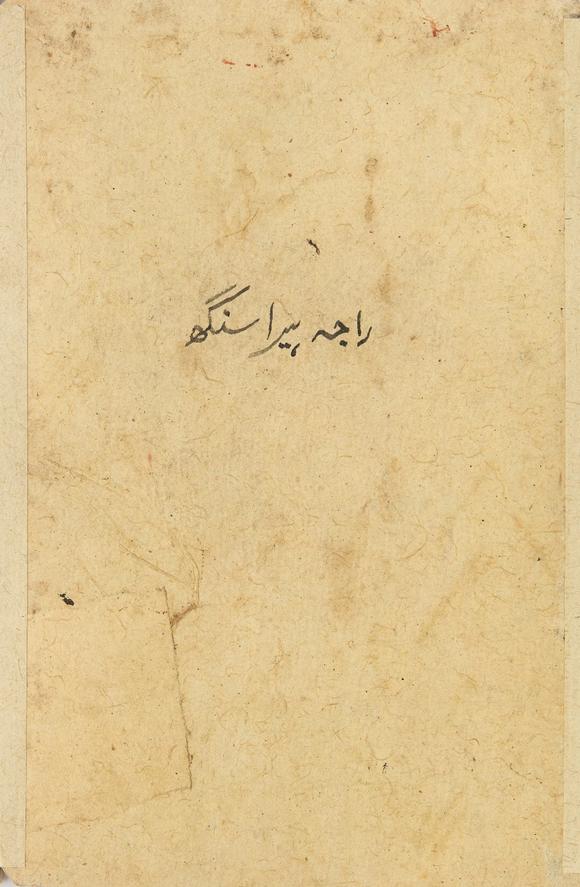 راجہ ہیرا سنگھ